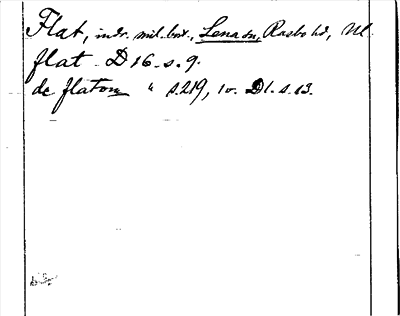 Flat, indr. mil. bost., Lena sn, Rasbo hd, Ul.
flat - D 16. s. 9.
de flatom " s. 219, 10. D1. s. 13.